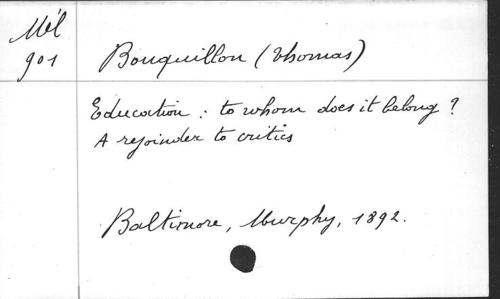 Mél
901
Bouquillon (Thomas)
Education : to whom does it belong ?
A rejoinder to critics
Baltimore, Murphy, 1892.